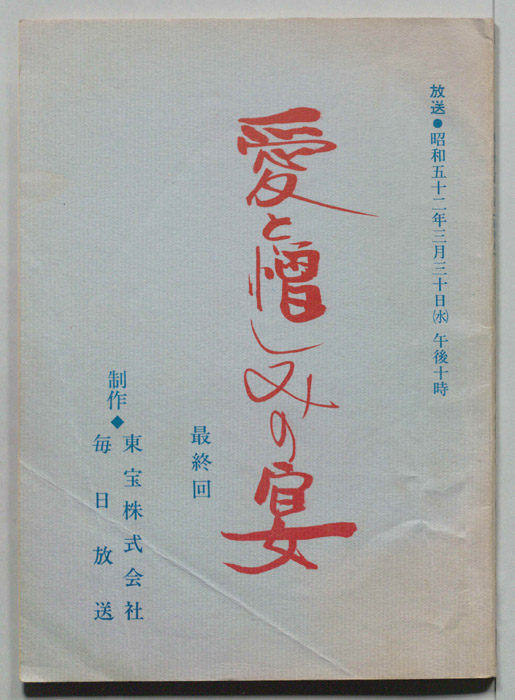 放送●昭和五十二年三月三十日㈬午後十時
愛と憎しみの宴
最終回
制作◆東宝株式会社
毎日放送